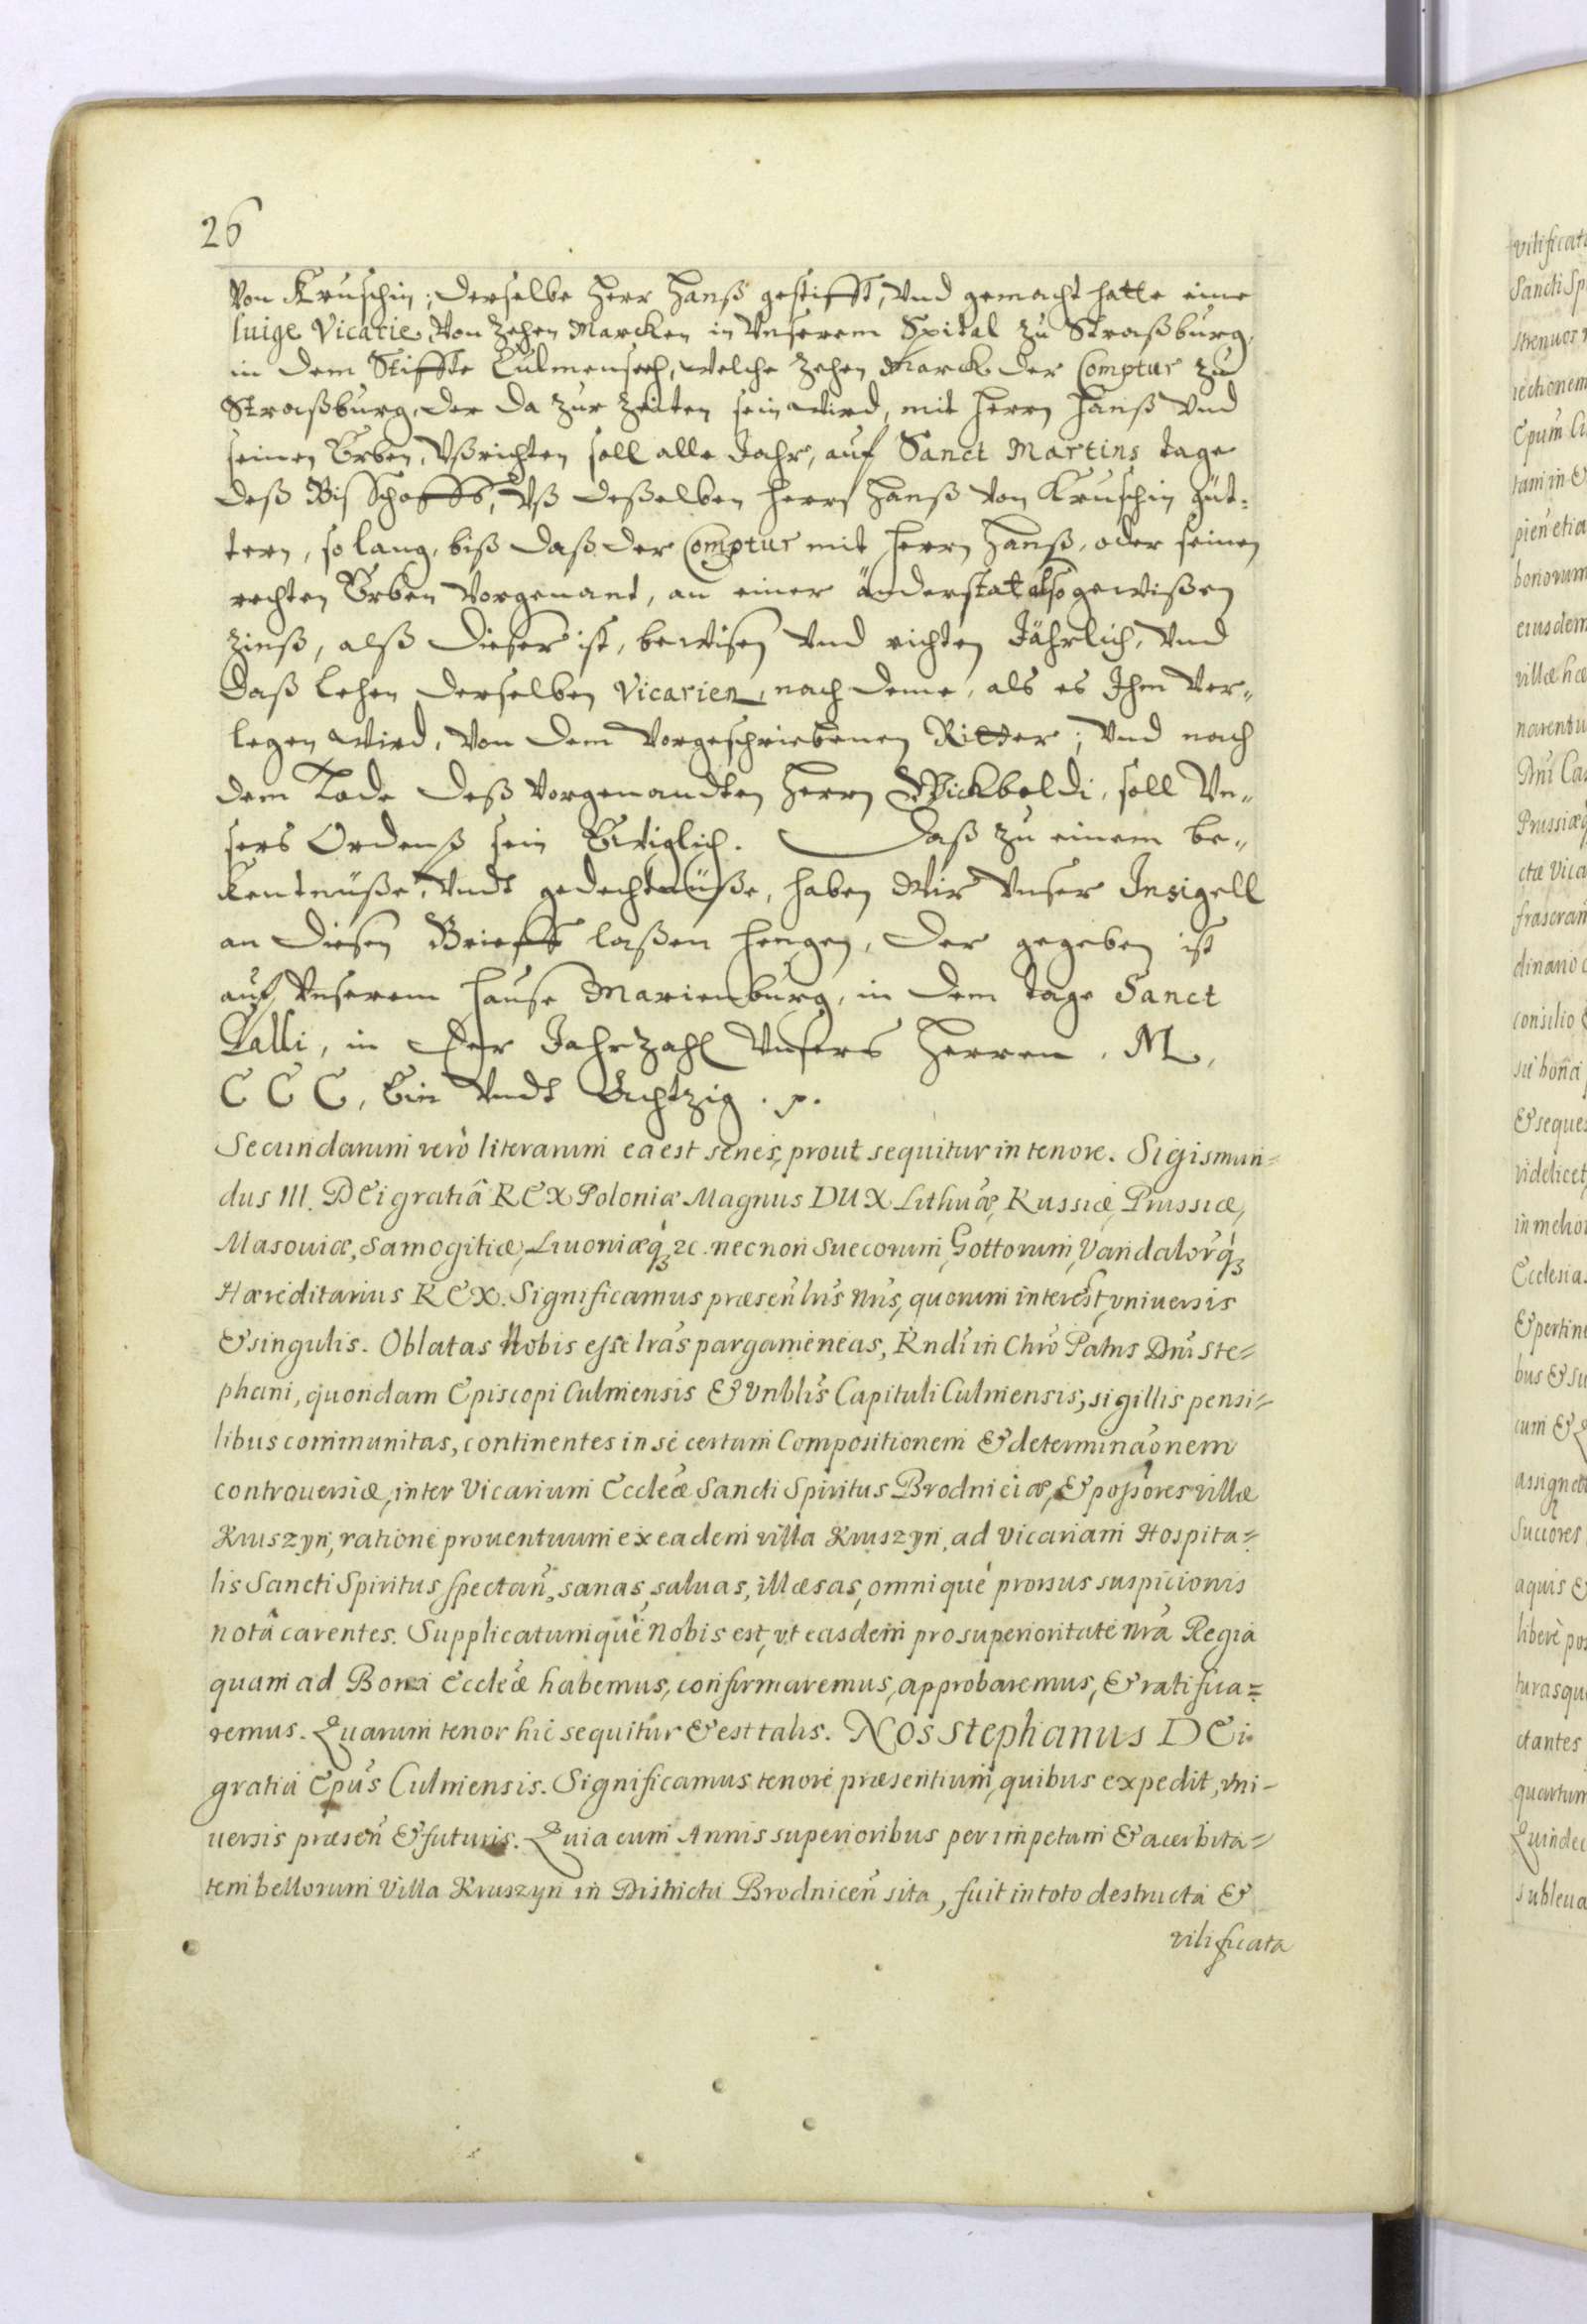 26
von Kruschin; derselbe Herr Hanß gestifft, und gemacht hatte eine
luige Vicarie, von Zehen Marcken in Unserem Spital zu Straßburg,
in dem Stiffte Culmenseeh, welche zehen Marck der Comptur zu
Straßburg, der da zur Zeiten sein wird, mit Herrn Hanß und
seinen Erben, Ußrichten soll alle Jahr, auf Sanct Martins tage
deß Bisschoffs, Uß deßelben Herrn Hanß von Kruschin güt:
tern, so lang, biß daß der Comptur mit Herrn Hanß, oder seinen
rechten Erben vorgenant, an einer änderstat also gewißen
Zinß, alß dieser ist, bewisen und richten Jährlich, und
daß lehen derselben Vicarien, nach deme, als es Ihm ver„
legen wird, von dem vorgeschriebenen Ritter; und nach
dem Tode deß vorgenandten Herrn Wickboldi, soll Un„
sers Ordenß sein Ewiglich. Daß zu einem be„
kentnüße, undt gedechtnüße, haben Wir Unser Insigell
an diesen Brieff laßen hengen, der gegeben ist
auf Unserem Hause Marienburg, in dem tage Sanct
Galli, in der Jahrzahl Unsers Herren, M,
C C C, Ein undt Achtzig. p.
Secundarum verò literarum ea est series, prout sequitur in tenore. Sigismun=
dus III. DEi gratiâ REX Poloniæ Magnus DUX Lithuæ, Russiæ, Prussiæ,
Masouiæ, Samogitiæ, Liuoniæq́ꝫ ⁊c. necnon Suecorum, Gottorum, Vandalorq́ꝫ
Hæreditarius REX. Significamus præsen̄ lrīs nrīs, quorum interest, vniuersis
& singulis. Oblatas Nobis esse lrās pargameneas, Rndī in Chrō Patris Dnī Ste=
phani, quondam Episcopi Culmensis & vnblis Capituli Culmensis, sigillis pensi=
libus communitas, continentes in se certam Compositionem & determinaōnem
controuersiæ, inter Vicarium Eccleæ Sancti Spiritus Brodniciæ, & possores villæ
Kruszyn, ratione prouentuum ex eadem villa Kruszyn, ad Vicariam Hospita=
lis Sancti Spiritus spectan̄, sanas, saluas, illæsas, omnique prorsus suspicionis
notâ carentes. Supplicatumque Nobis est, vt easdem pro superioritate nrā Regia
quam ad Bona Eccleæ habemus, confirmaremus, approbaremus, & ratifica=
remus. Quarum tenor hic sequitur & est talis. Nos Stephanus DEi
gratia Epūs Culmensis. Significamus tenore præsentium, quibus expedit, vni-
uersis præsen̄ & futuris. Quia cum Annis superioribus per impetum & acerbita=
tem bellorum Villa Kruszyn in Districtu Brodnicen̄ sita, fuit in toto destructa &
vilificata